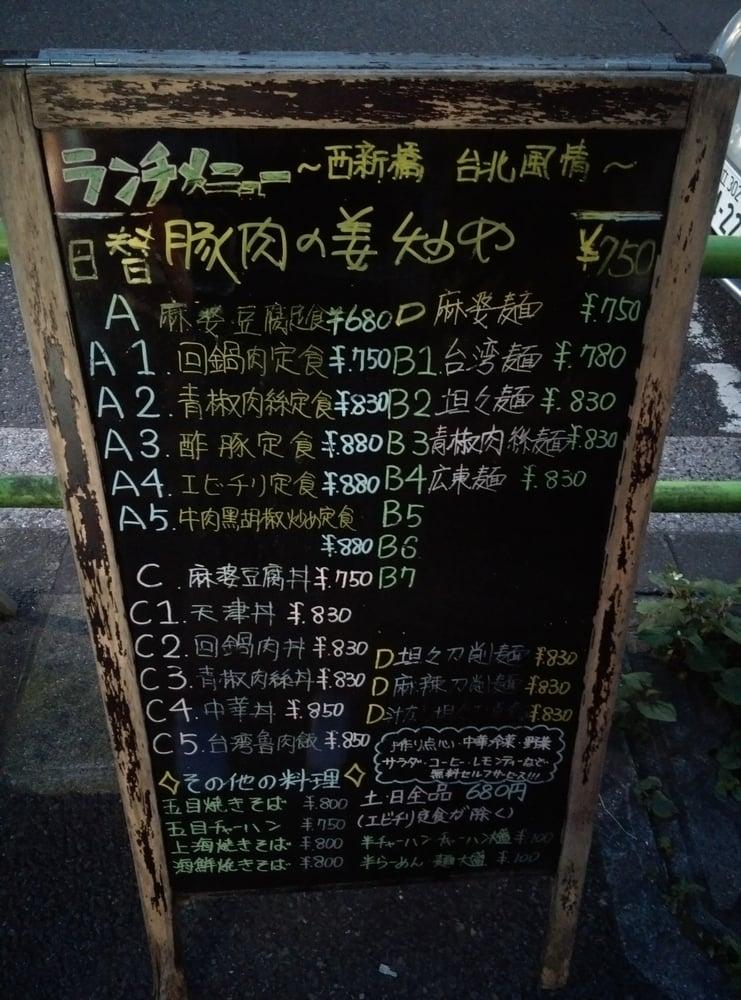 ランチメニュー ～西新橋 台北風情～
日替 豚肉の姜炒め ¥750
A 麻婆豆腐定食 ¥680
A1. 回鍋肉定食 ¥.750
A2. 青椒肉絲定食 ¥830
A3. 酢豚定食 ¥.880
A4. エビチリ定食 ¥880
A5. 牛肉黒胡椒炒め定食
¥.880
D 麻婆麺 ¥.750
B1. 台湾麺 ¥.780
B2. 坦々麺 ¥.830
B3 青椒肉絲麺 ¥.830
B4 広東麺 ¥.830
B5
B6
B7
C. 麻婆豆腐丼 ¥.750
C1. 天津丼 ¥.830
C2. 回鍋肉丼 ¥.830
C3. 青椒肉絲丼 ¥.830
C4. 中華丼 ¥.850
C5. 台湾魯肉飯 ¥.850
D 坦々刀削麺 ¥830
D 麻辣刀削麺 ¥830
D 汁 ¥830
手作り点心・中華冷菜・野菜
サラダ・コーヒー・レモンティーなど
無料セルフサービス!!!
その他の料理
五目焼きそば ¥.800
五目チャーハン ¥.750
上海焼きそば ¥.800
海鮮焼きそば ¥.800
土・日全品 680円
(エビチリ定食が除く)
半チャーハン チャーハン大盛 ¥.100
半らーめん 麺大盛 ¥.100